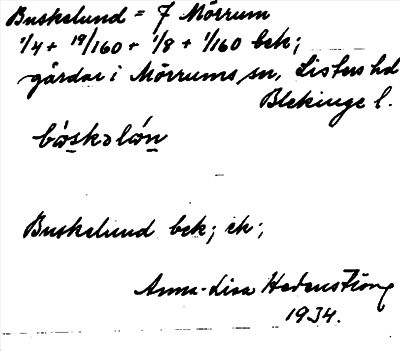 Buskelund = 7 Mörrum
1/4 + 19/160 + 1/8 + 1/160 bek;
gårdar i Mörrums sn, Listers hd
Blekinge l.
bòskəlón
Buskelund bek; ek;
Anna-Lisa Hedenström
1934.